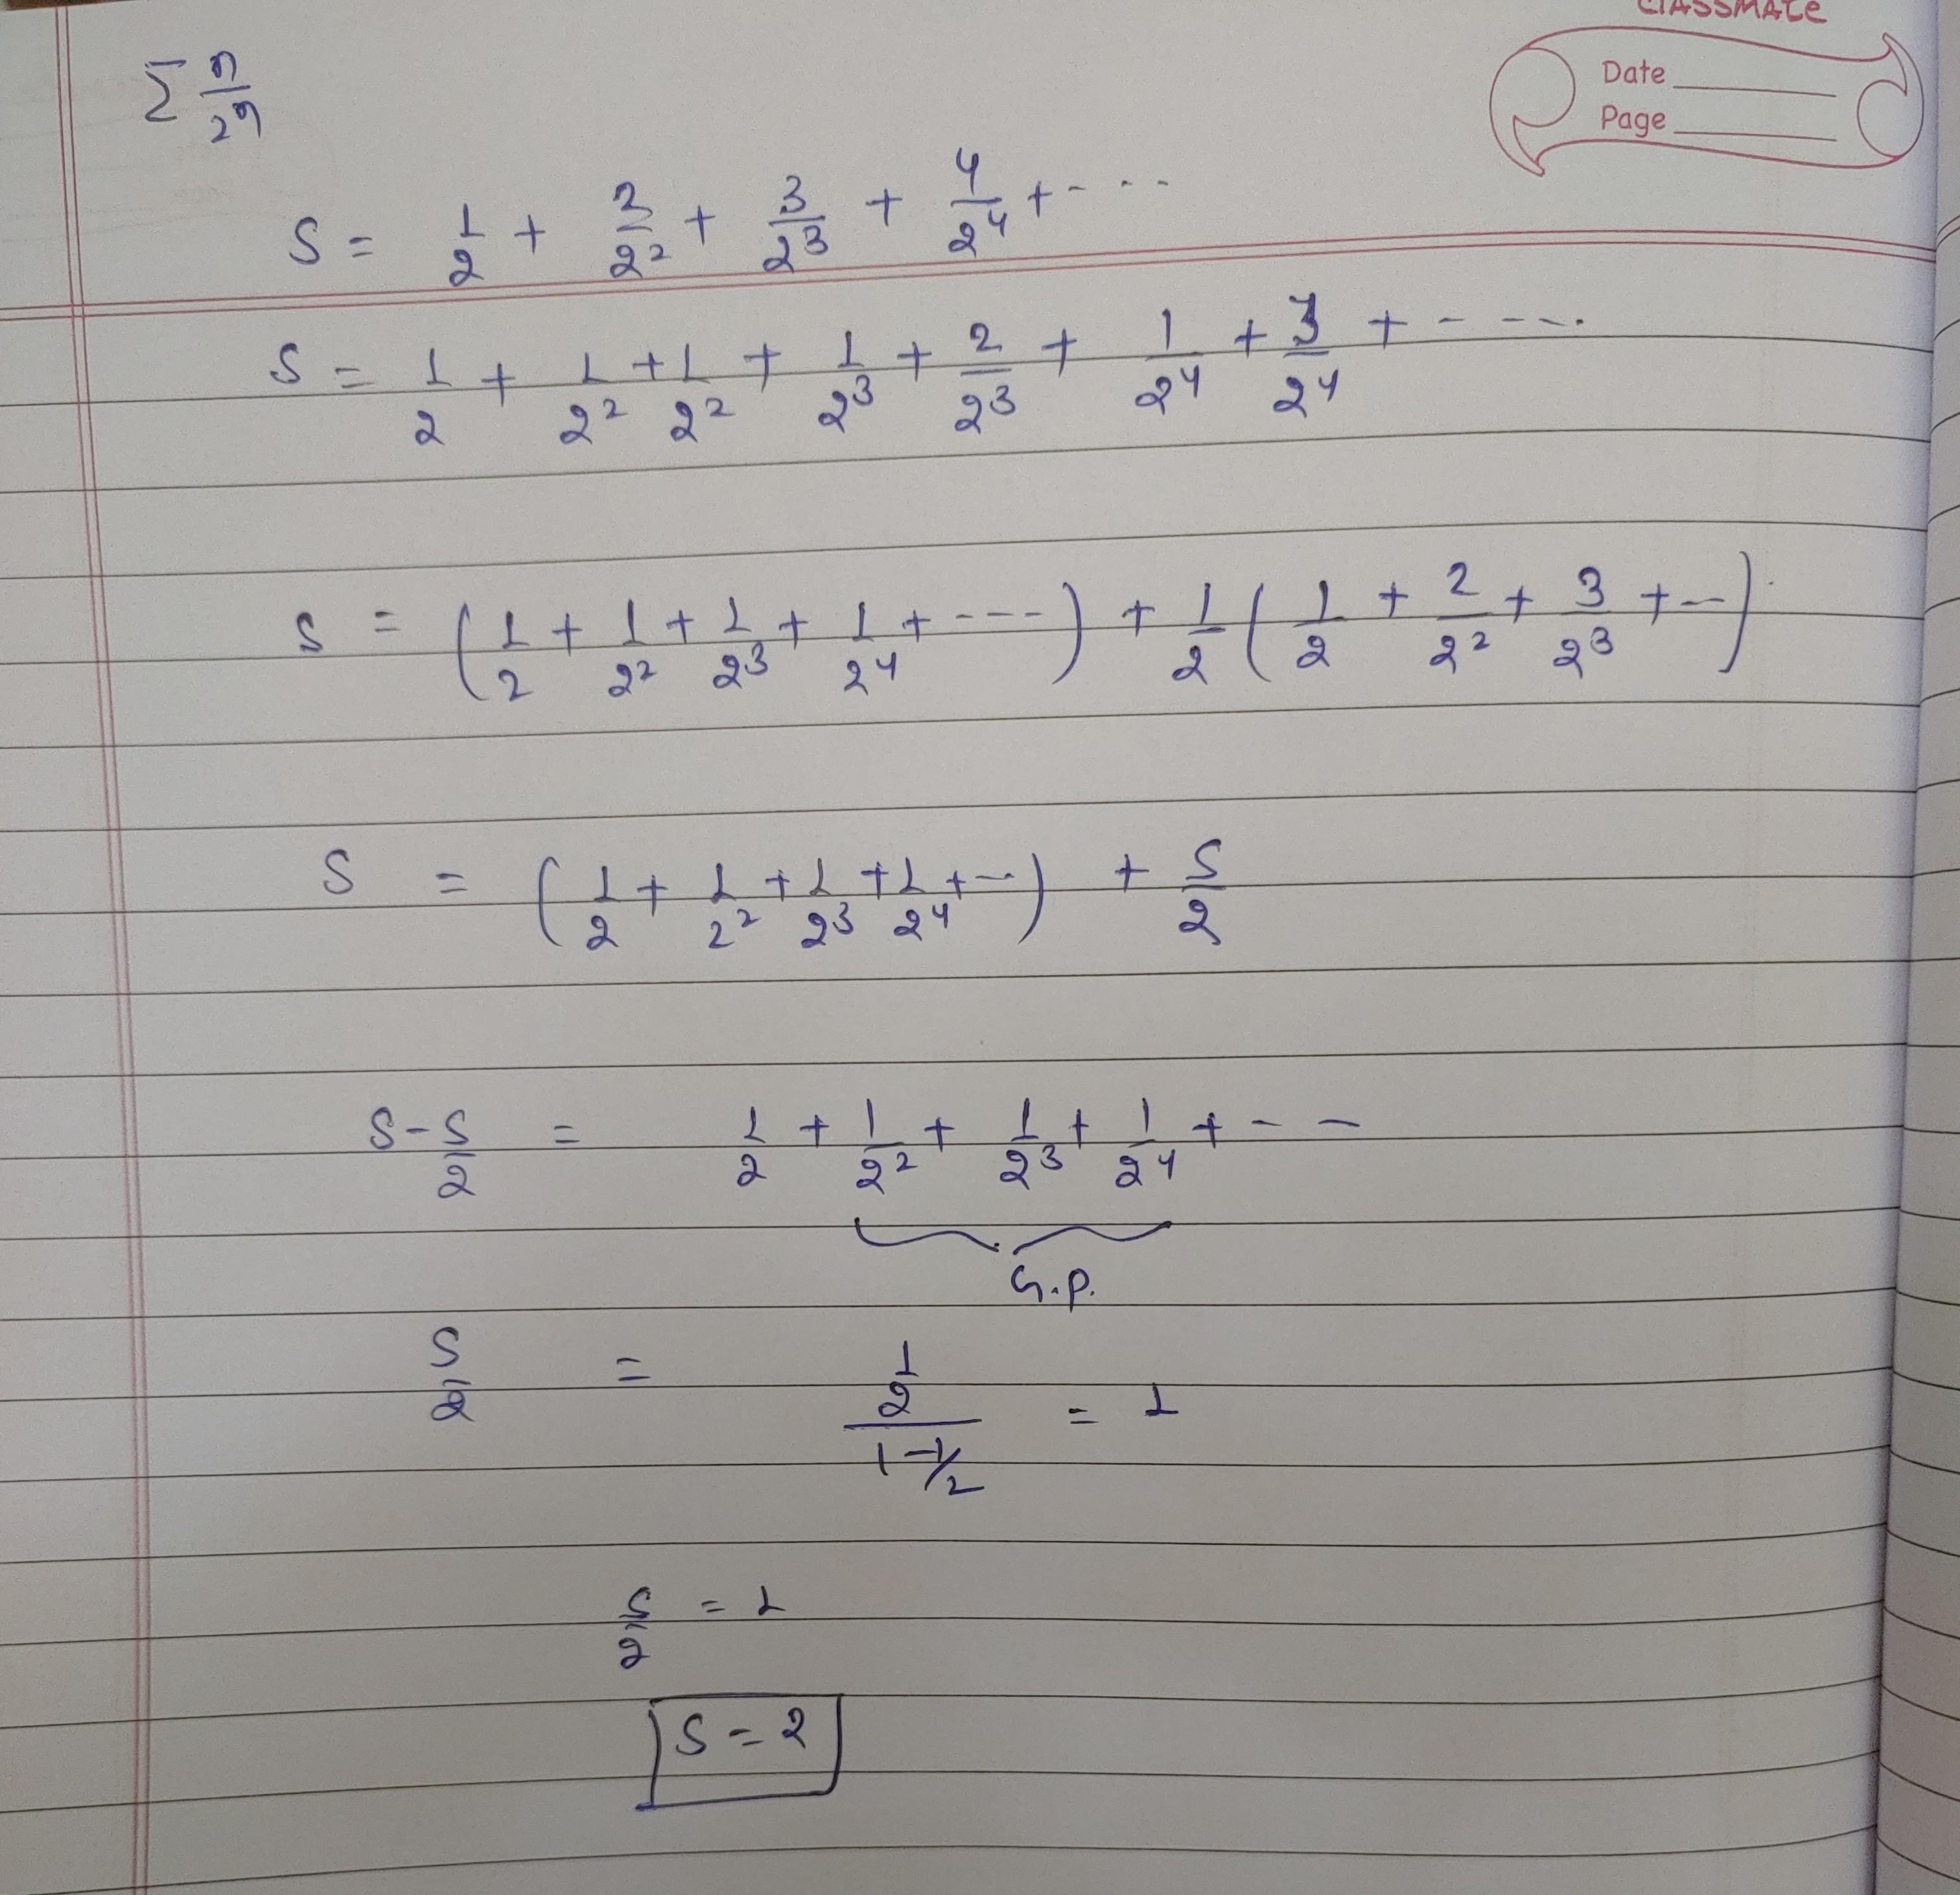 classmate
Date
Page
Σ n/2^n
S = 1/2 + 2/2² + 3/2³ + 4/2⁴ + - ---
S = 1/2 + 1/2² + 1/2² + 1/2³ + 2/2³ + 1/2⁴ + 3/2⁴ + - ----
S = (1/2 + 1/2² + 1/2³ + 1/2⁴ + ----) + 1/2 (1/2 + 2/2² + 3/2³ + --)
S = (1/2 + 1/2² + 1/2³ + 1/2⁴ + --) + S/2
S - S/2 = 1/2 + 1/2² + 1/2³ + 1/2⁴ + - -
G.P.
S/2 = (1/2)/(1 - 1/2) = 1
S/2 = 1
S = 2